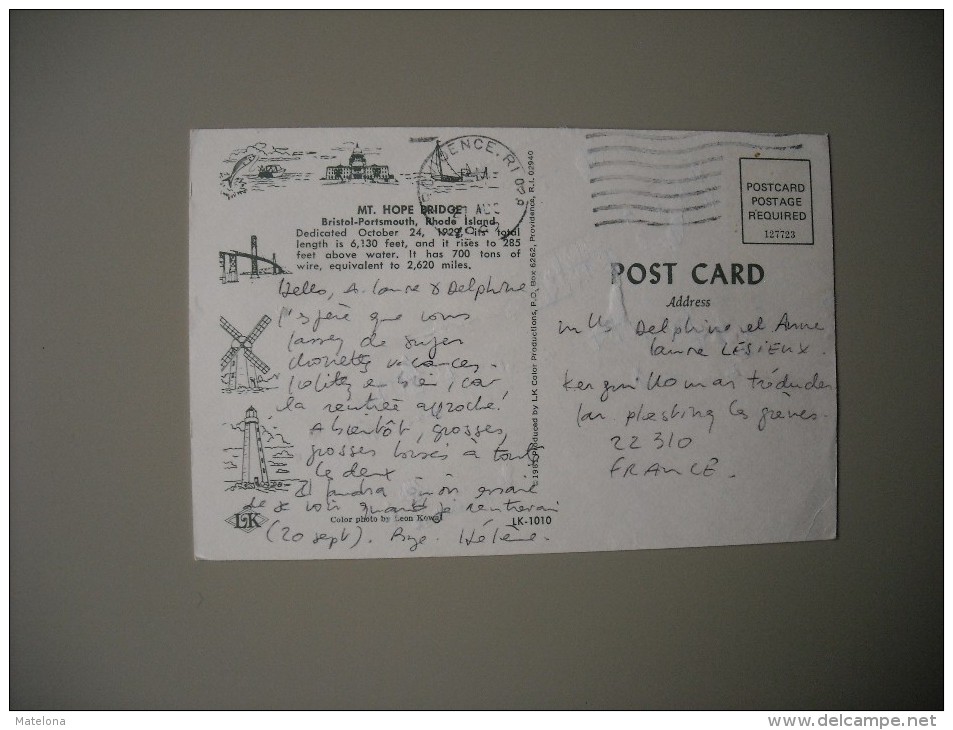 PROVIDENCE, RI 029
PM
AUG
MT. HOPE BRIDGE
Bristol-Portsmouth, Rhode Island
Dedicated October 24, 1929, its total
length is 6,130 feet, and it rises to 285
feet above water. It has 700 tons of
wire, equivalent to 2,620 miles.
Hello, A. Laure & Delphine
J'espère que vous
passez de super
chouettes vacances.
Profitez en bien, car
la rentrée approche!
A bientôt, grosses,
grosses bises à toutes
les deux
Il faudra qu'on essaie
de se voir quand je rentrerai
(20 sept). Bye. Hélène.
Color photo by Leon Kowal
LK
LK-1010
Produced by LK Color Productions, P.O. Box 6262, Providence, R.I. 02940
POSTCARD
POSTAGE
REQUIRED
127723
POST CARD
Address
Mlles Delphine et Anne
Laure LESIEUX.
Tréduder
par plestin les grèves.
22310
FRANCE.
Matelona
www.delcampe.net